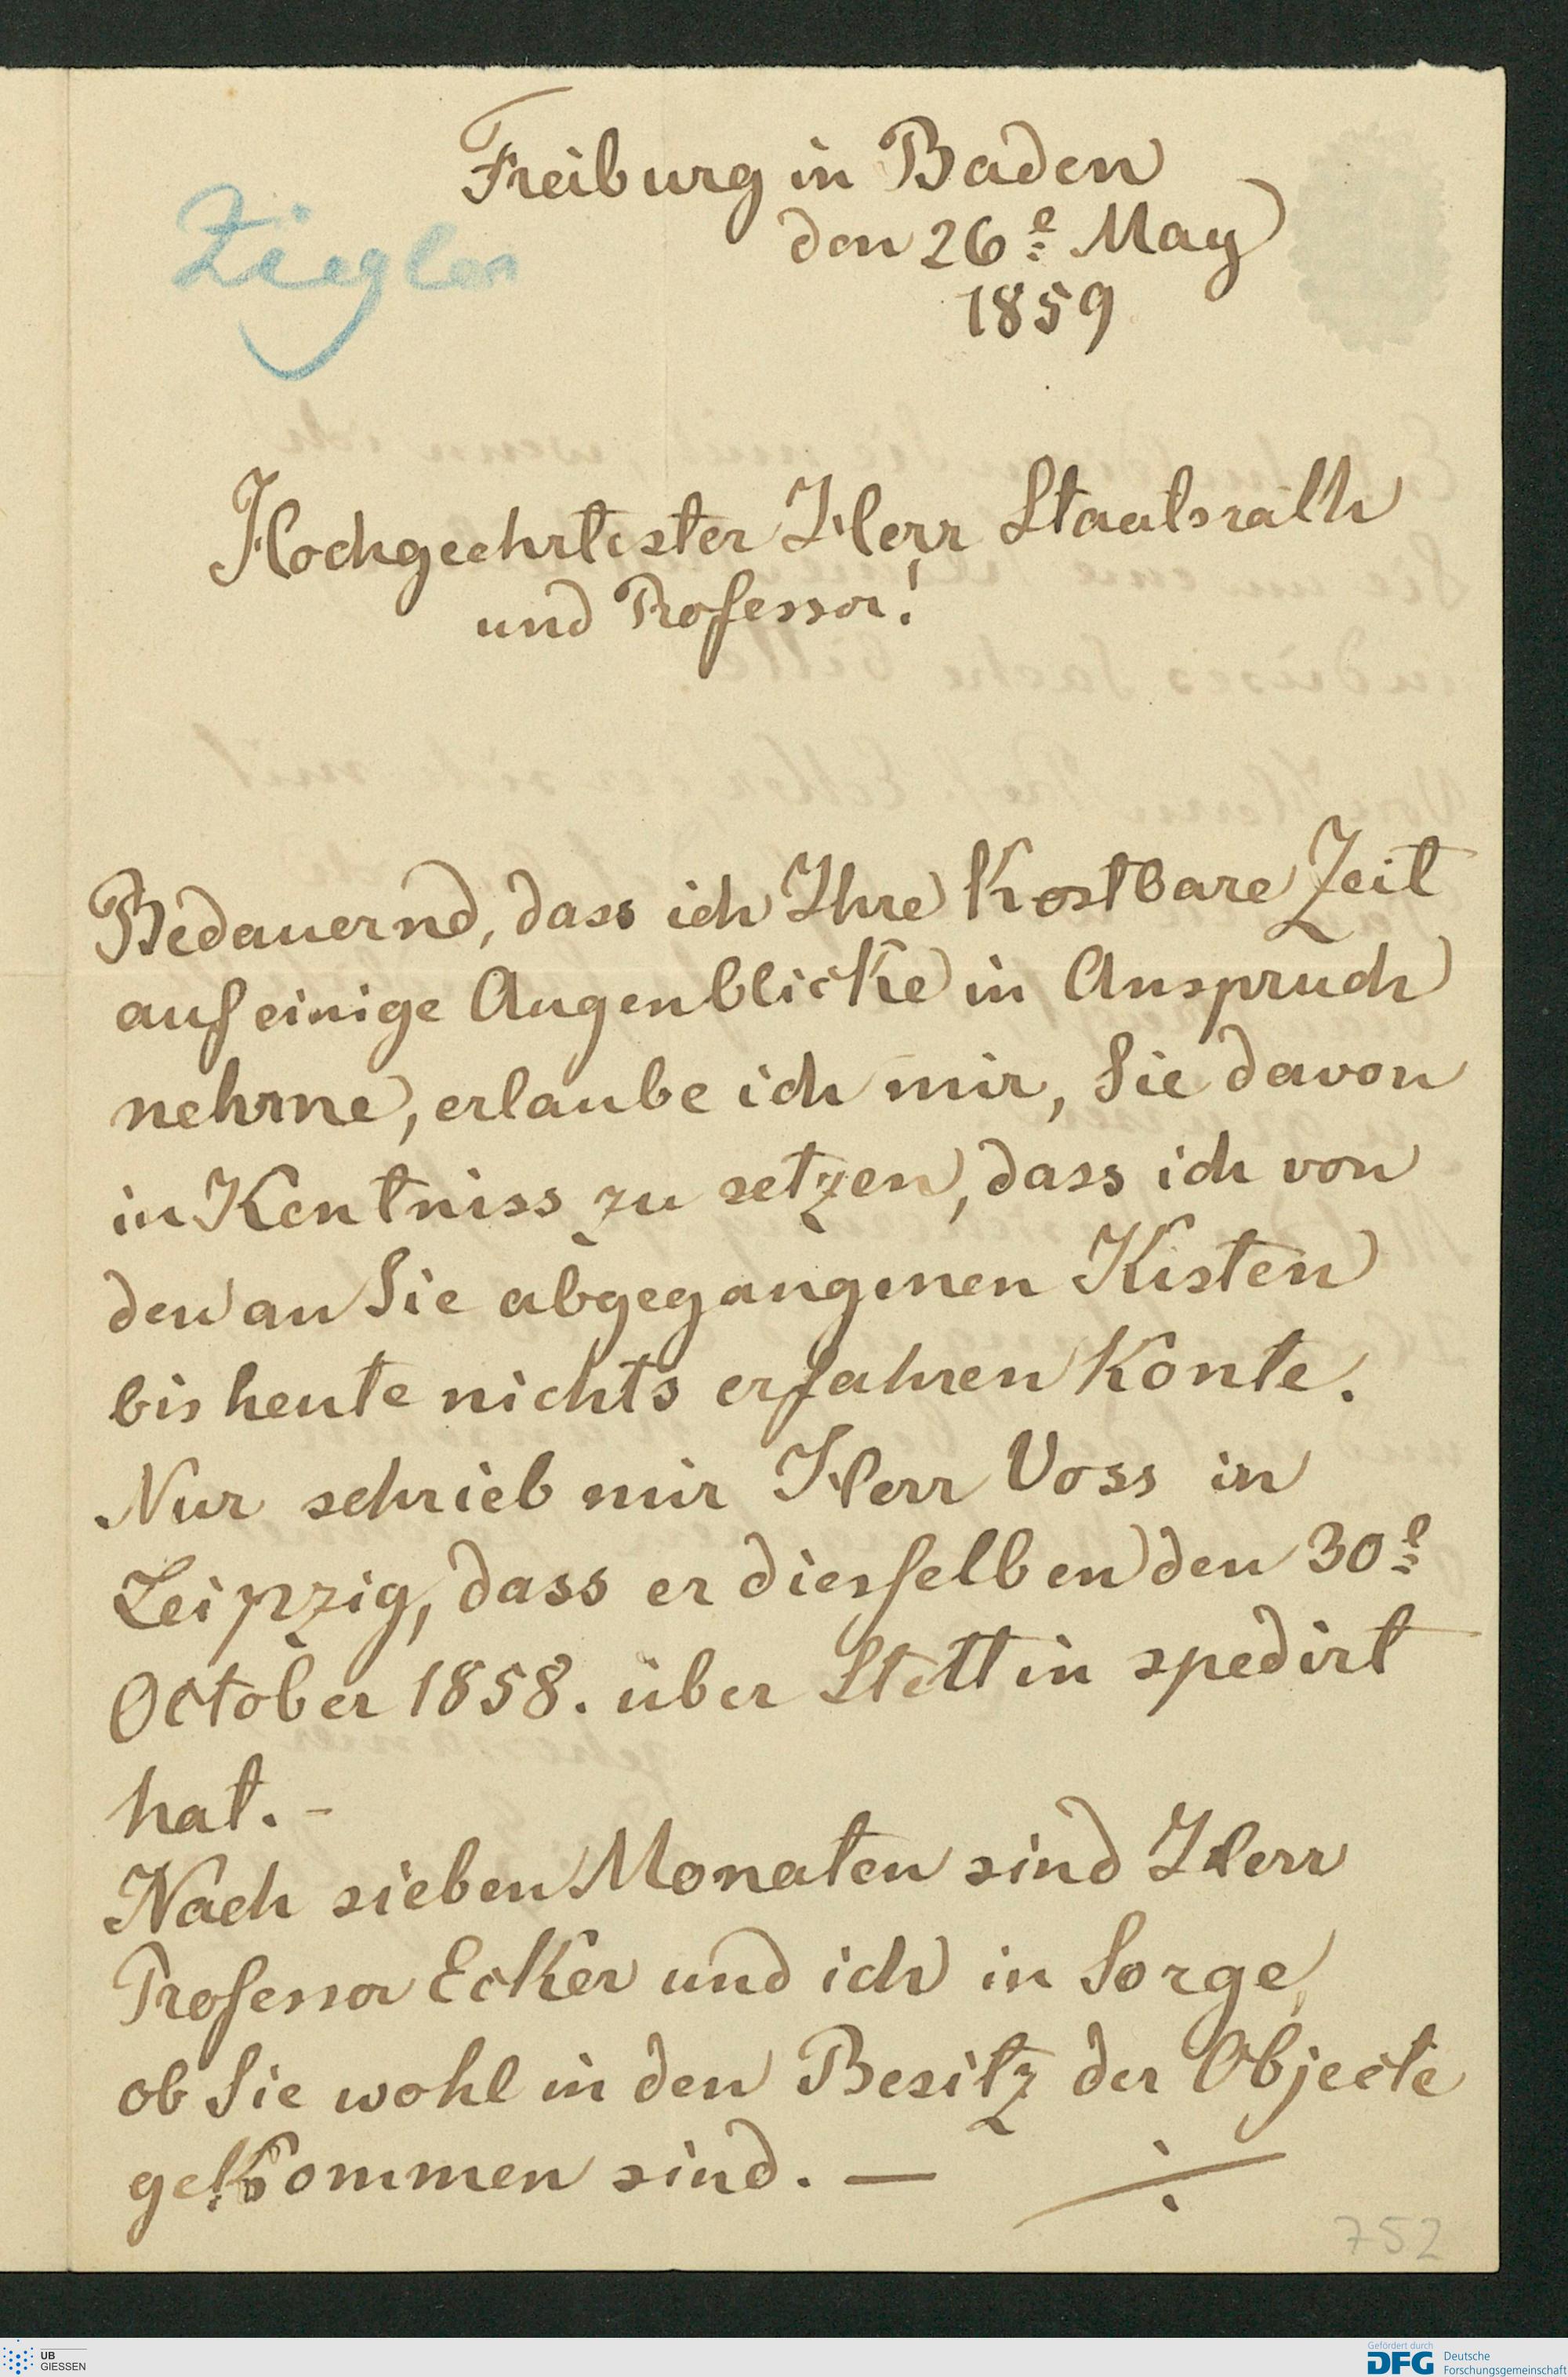 Freiburg in Baden
den 26e May
1859
Ziegler
Hochgeehrtester Herr Staatsrath
und Professor!
Bedauernd, dass ich Ihre Kostbare Zeit
auf einige Augenblicke in Anspruch
nehme, erlaube ich mir, Sie davon
in Kentniss zu setzen, dass ich von
den an Sie abgegangenen Kisten
bis heute nichts erfahren Konte.
Nur schrieb mir Herr Voss in
Leipzig, dass er diesselben den 30e
October 1858. über Stettin spedirt
hat. -
Nach sieben Monaten sind Herr
Professor Ecker und ich in Sorge,
ob Sie wohl in den Besitz der Objecte
gekommen sind. —
752
UB
GIESSEN
Gefördert durch
DFG Deutsche
Forschungsgemeinschaft